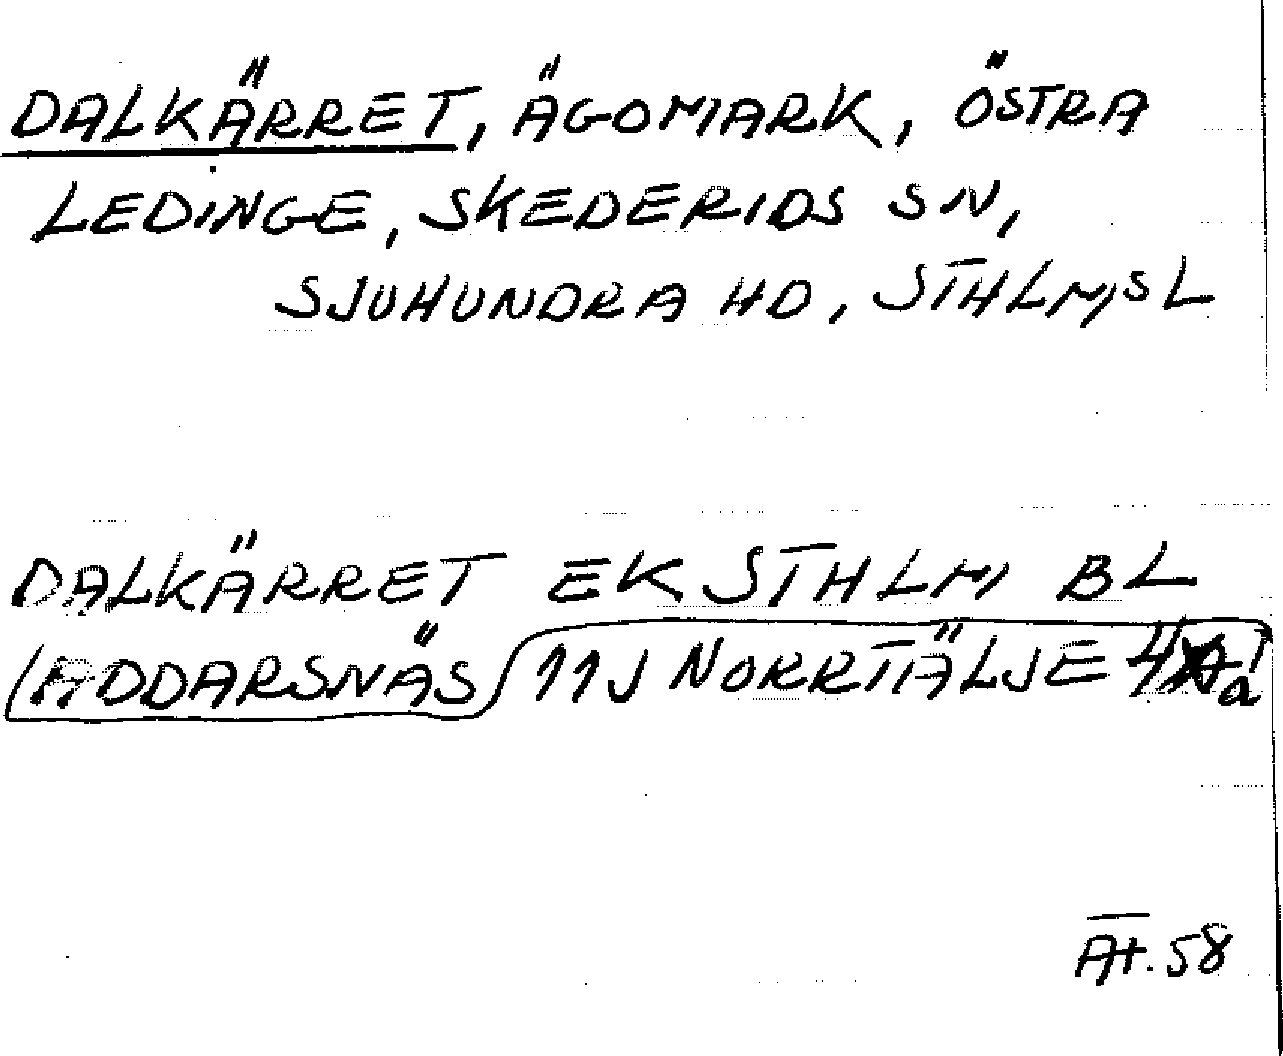 DALKÄRRET, ÄGOMARK, ÖSTRA
LEDINGE, SKEDERIDS SN,
SJUHUNDRA HD, STHLMSL
DALKÄRRET EK STHLM BL
(ADDARSNÄS) 11J NORRTÄLJE 4 a
At. 58